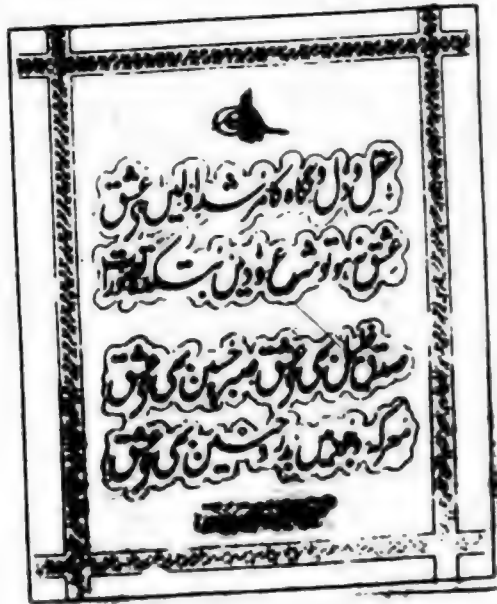 عقل و دل و نگاہ کا مرشد اولیں ہے عشق
عشق نہ ہو تو شرع و دیں بتکدہ تصورات
صدق خلیل بھی ہے عشق صبر حسین بھی ہے عشق
معرکہ وجود میں بدر و حنین بھی ہے عشق